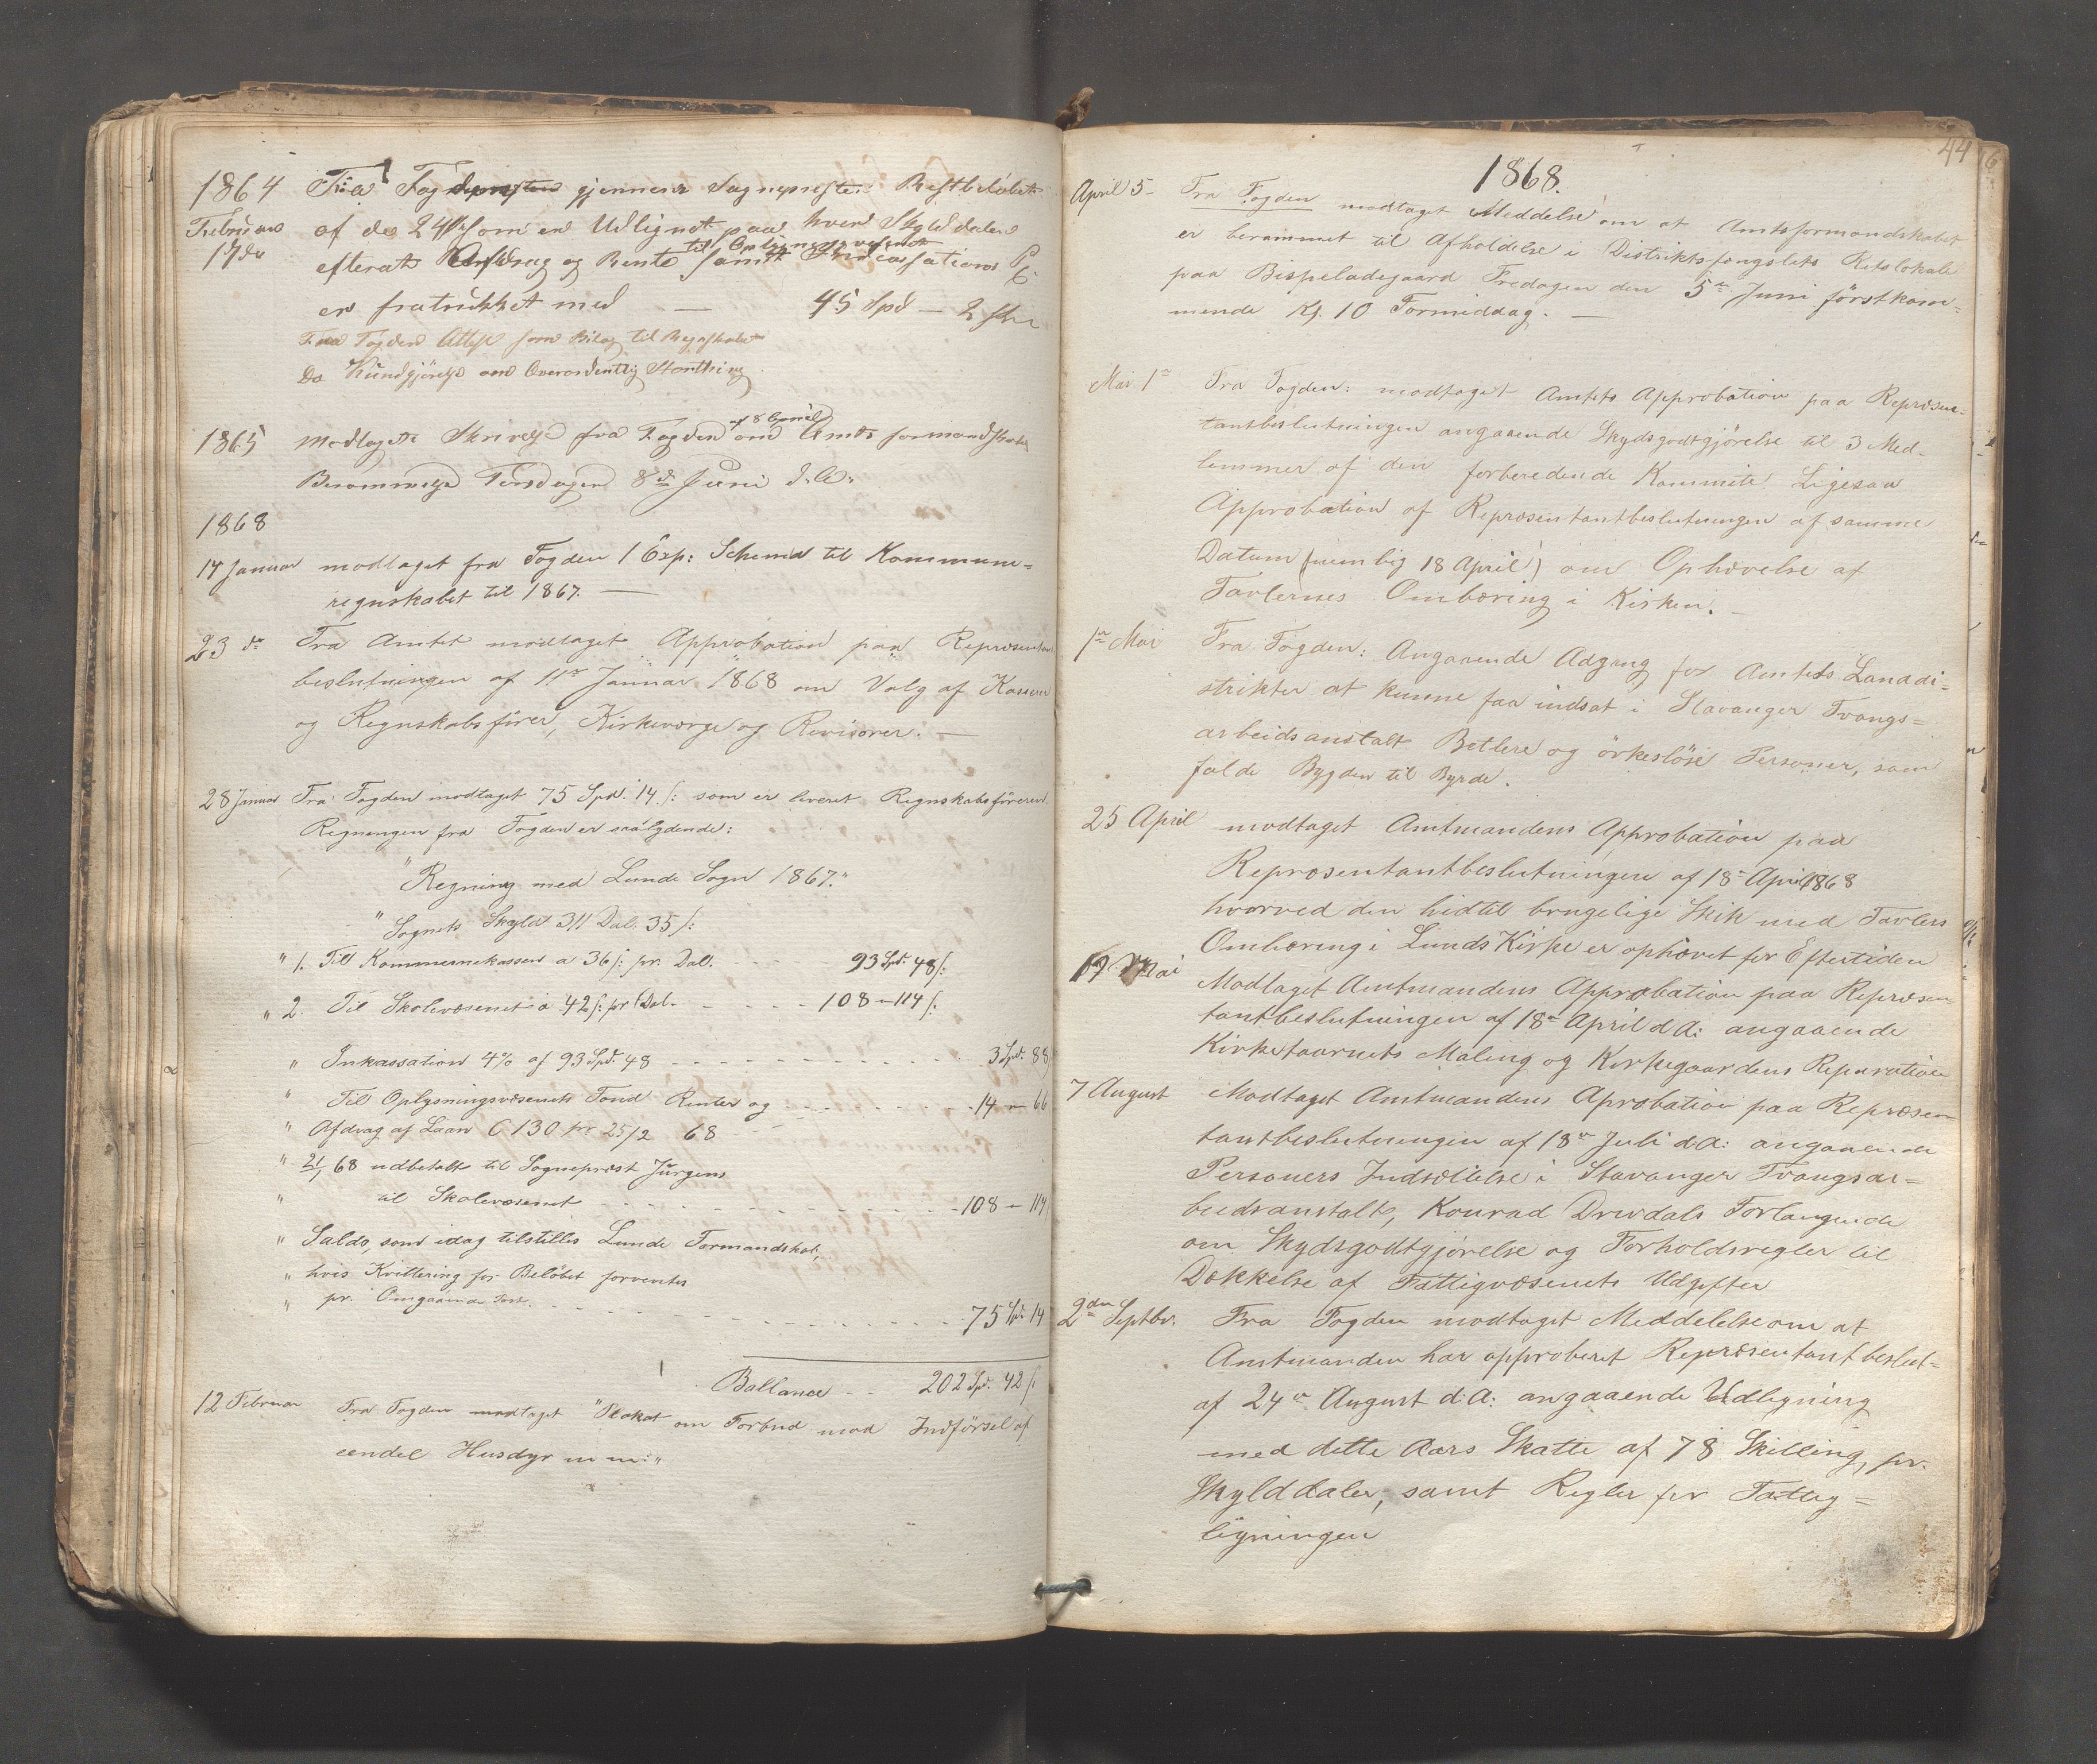 1864 Fra Fogden gjennem Sognepresten Restbeløbet
Februar af de 24 ß som er Udlignet paa hver Skylddaler
17de efterat Afdrag og Rente til Oplysningsvesenet samt Incassations
er fratrukket med — 45 Spd — 2 ß
Fra Fogden Attest som Bilag til Regnskabet
Do Kundgjørelse om Overordentlig Storthing
1865 modtaget Skrivelse fra Fogden af 8 April om Amts formandskabets
Berammelse Torsdagen 8de Juni d. A.
1868
14 Januar modtaget fra Fogden 1 Exp: Schema til Kommune=
regnskabet til 1867. —
23 do Fra Amtet modtaget Approbation paa Repræsentant
beslutningen af 11te Januar 1868 om Valg af Kasserer
og Regnskabsfører, Kirkeværge og Revisorer. —
28 Januar Fra Fogden modtaget 75 Spd. 14 ß: som er leveret Regnskabsføreren.
Regningen fra Fogden er saalydende:
"Regning med Lunde Sogn 1867."
" Sognets Skyld 311 Dal. 35 ß:
" 1. Til Kommunekassen a 36 ß: pr. Dal. - - - 93 Spd. 48 ß:
" 2. Til Skolevæsenet a 42 ß: pr Dal. - - - - - 108 — 114 ß:
" Inkassation 4% af 93 Spd. 48 - - - - - - - - - 3 Spd. 88
" Til Oplysningsvæsenets Fond Renter og - - - - - - 14 — 66
" Afdrag af Laan C 130 pr 25/2 68
" 21/1 68 udbetalt til Sogneprest Jürgens
" til Skolevæsenet - - - - - - - - - - 108 — 114
" Saldo, som idag tilstilles Lunde Formandskab,
" hvis Kvittering for Beløbet forventes
" pr. Omgaaende Post. - - - - - - - - - - - 75 Spd. 14
Ballance - - 202 Spd. 42 ß:
12 Februar Fra Fogden modtaget "Plakat om Forbud mod Indførsel af
eendel Husdyr m m:"
44
1868.
April 5 - Fra Fogden modtaget Meddelse om at Amtsformandskabet
er berammet til Afholdelse i Distriktsfængslets Retslokale
paa Bispeladegaard Fredagen den 5te Juni førstkom=
mende Kl. 10 Formiddag. —
Mai 1ste Fra Fogden: modtaget Amtets Approbation paa Repræsen-
tantbeslutningen angaaende Skydsgodtgjørelse til 3 Med-
lemmer af den forberedende Kommite. Ligesaa
Approbation af Repræsentantbeslutningen af samme
Datum (nemlig 18 April) om Ophævelse af
Tavlernes Ombæring i Kirken. —
1ste Mai Fra Fogden: Angaaende Adgang for Amtets Landdi=
strikter at kunne faa indsat i Stavanger Tvangs=
arbeidsanstalt Betlere og ørkesløse Personer, som
falde Bygden til Byrde.
25 April modtaget Amtmandens Approbation paa
Repræsentantbeslutningen af 18de April 1868
hvorved den hidtil brugelige Skik med Tavlers
Ombæring i Lunds Kirke er ophævet for Eftertiden
19 Mai Modtaget Amtmandens Approbation paa Repræsen
tantbeslutningen af 18de April d A: angaaende
Kirketaarnets Maling og Kirkegaardens Reparation
7 August Modtaget Amtmandens Aprobation paa Repræsen
tantbeslutningen af 18de Juli d:A: angaaende
Personers Indsættelse i Stavanger Tvangsar=
beidsanstalt, Konrad Drivdals Forlangende
om Skydsgodtgjørelse og Forholdsregler til
Dækkelse af Fattigvæsenets Udgifter
2den Septbr. Fra Fogden modtaget Meddelelse om at
Amtmanden har approberet Repræsentantbeslut-
af 24de August d:A: angaaende Udligning
med dette Aars Skatte af 78 Skilling, pr.
Skylddaler, samt Regler for Fattig=
ligningen